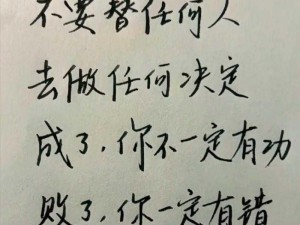 不要替任何人
去做任何决定
成了,你不一定有功
败了,你一定有错